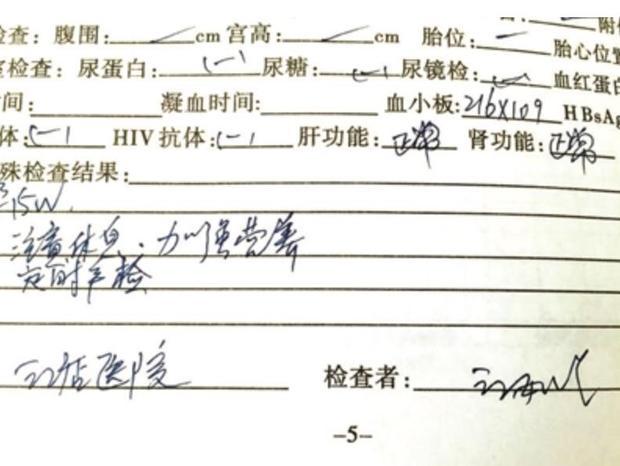 检查: 腹围: cm 宫高: cm 胎位: 胎心位置
检查: 尿蛋白: (-) 尿糖: (-) 尿镜检: 血红蛋白
时间: 凝血时间: 血小板: 216×109 HBsAg
体: (-) HIV 抗体: (-) 肝功能: 正常 肾功能: 正常
殊检查结果:
15W
注意休息. 加强营养
定时产检
医院 检查者:
-5-